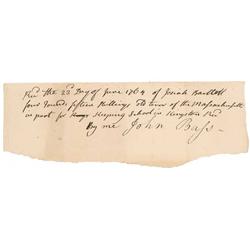 Recd the 22d Day of June 1764 of Josiah Bartlett
four Pounds fifteen Shillings old tenor of the Massachusetts
in part for Keeping School in Kingston Recd
By me John Bass